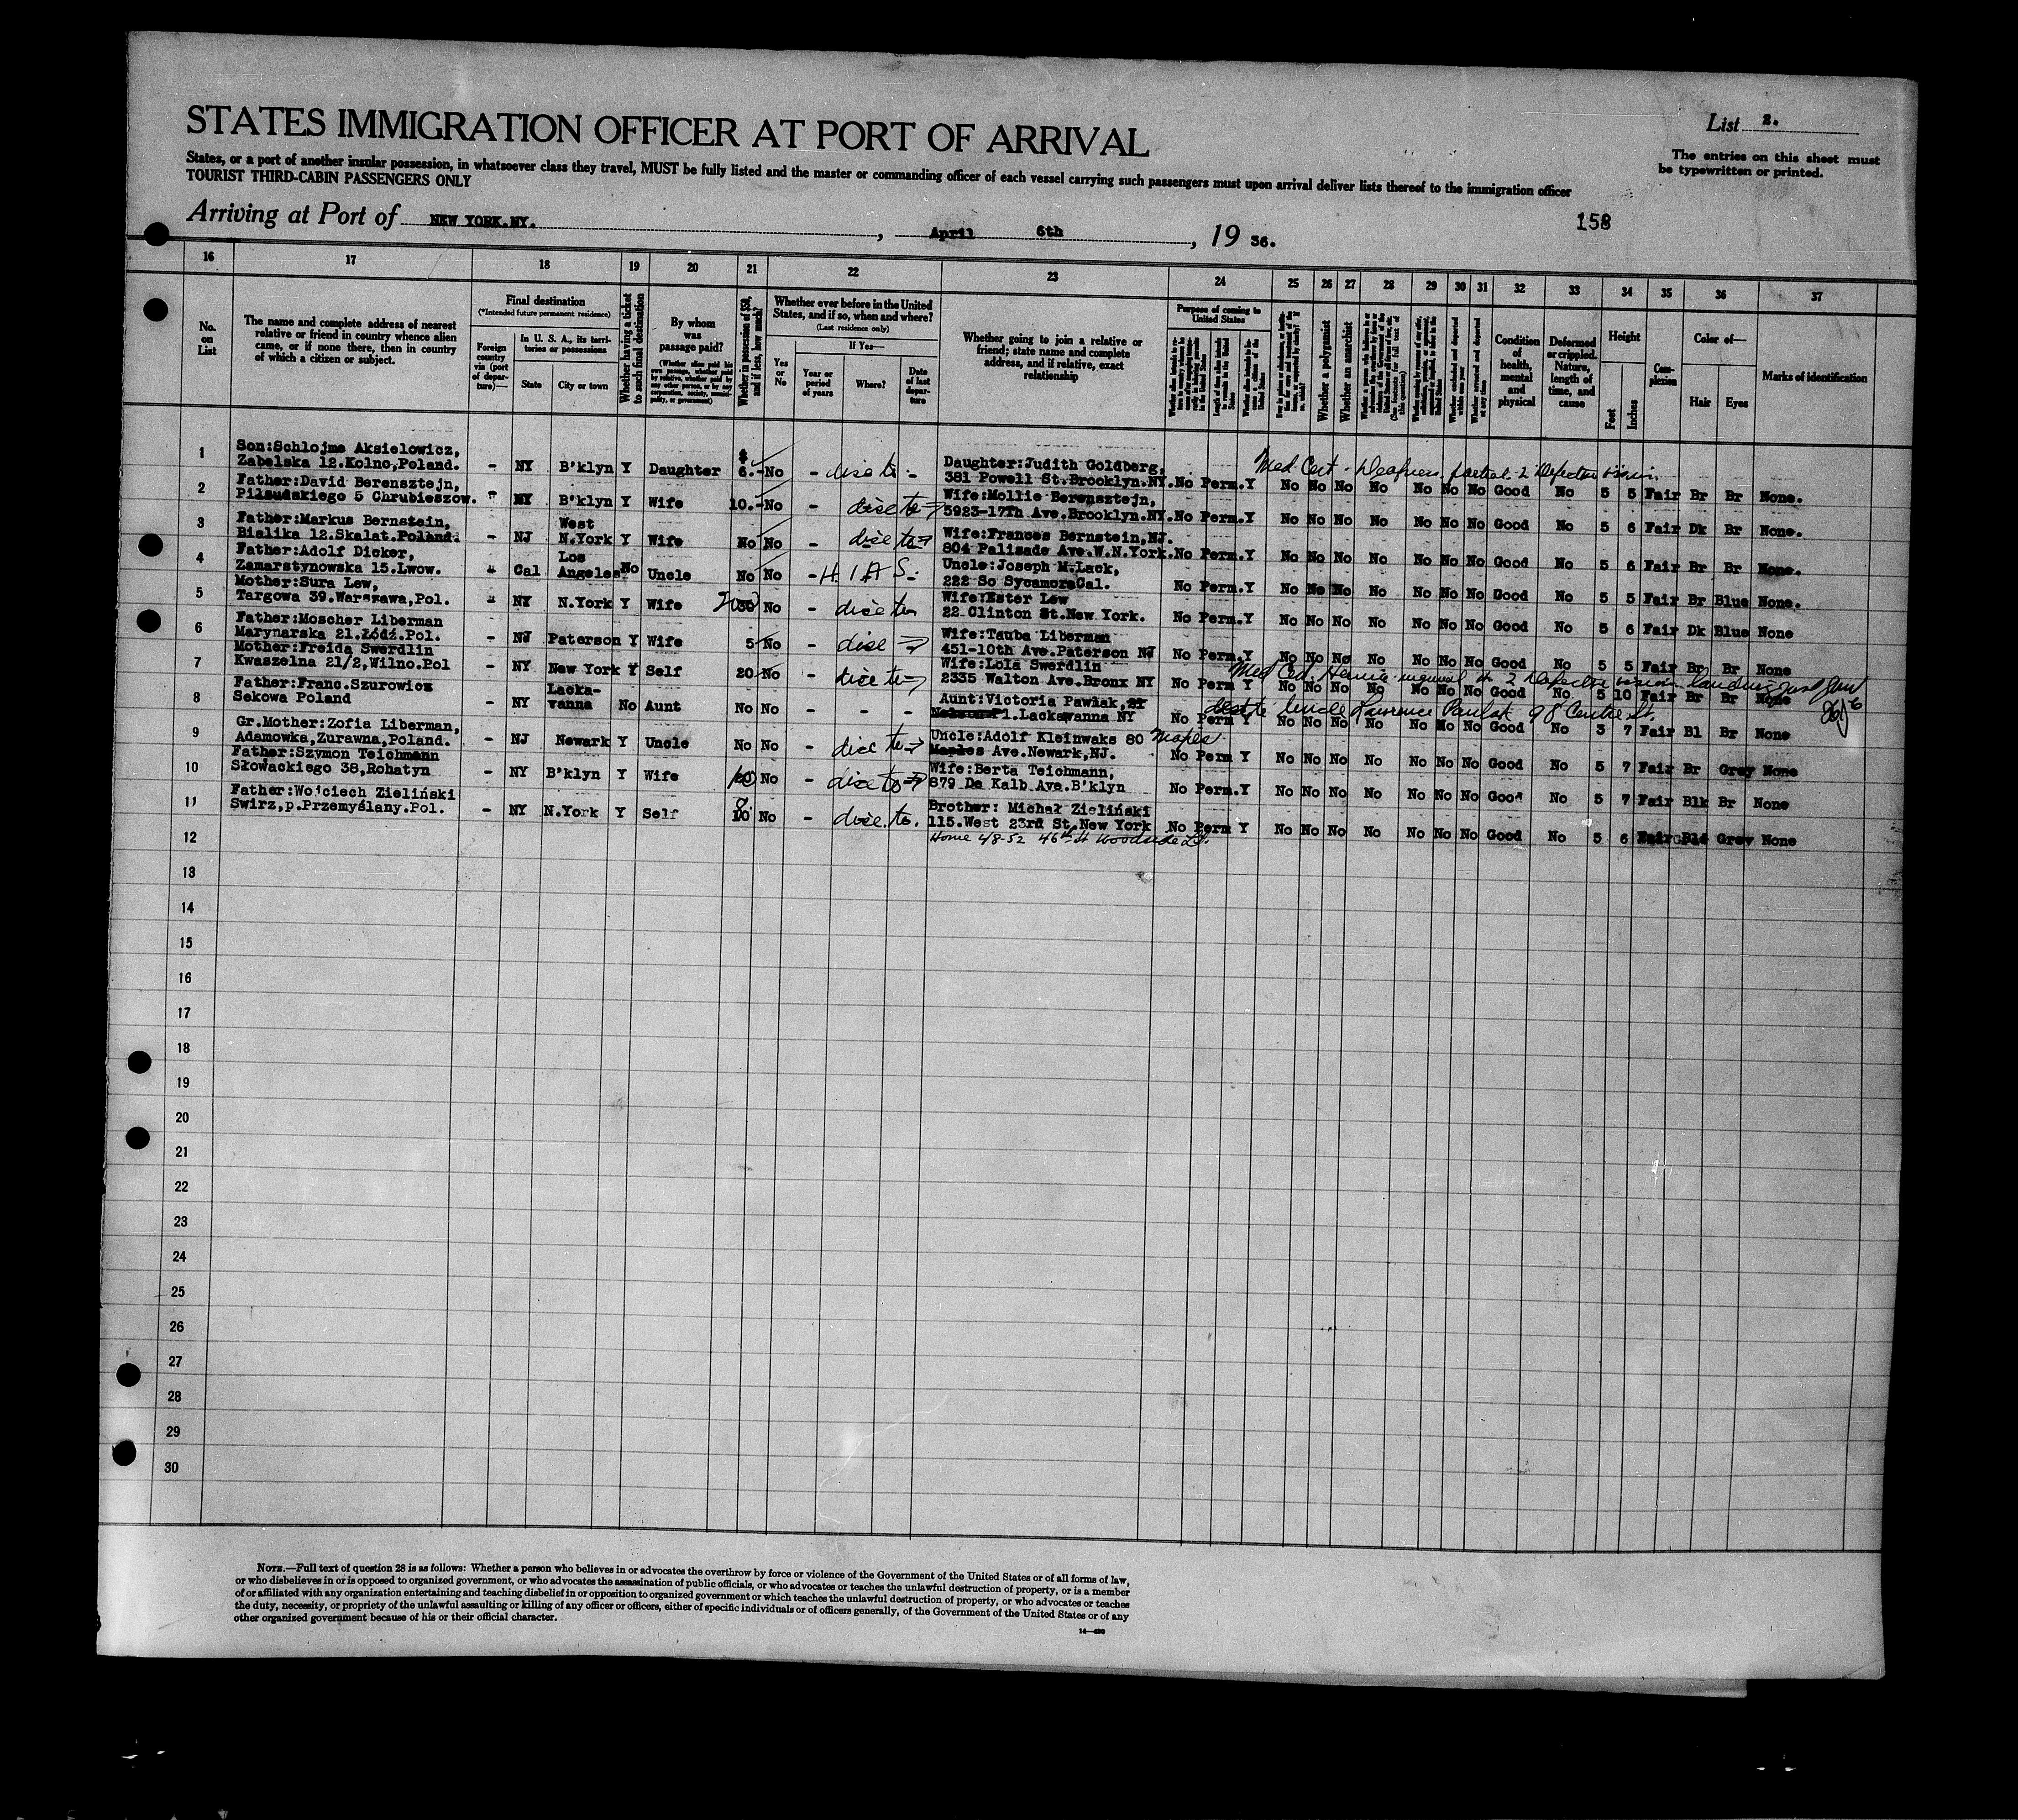 STATES IMMIGRATION OFFICER AT PORT OF ARRIVAL
List 2.
States, or a port of another insular possession, in whatsoever class they travel, MUST be fully listed and the master or commanding officer of each vessel carrying such passengers must upon arrival deliver lists thereof to the immigration officer
TOURIST THIRD-CABIN PASSENGERS ONLY
The entries on this sheet must
be typewritten or printed.
Arriving at Port of NEW YORK.NY. , April 6th , 19 36.
158
16 17 18 19 20 21 22 23 24 25 26 27 28 29 30 31 32 33 34 35 36 37
No. on List
The name and complete address of nearest
relative or friend in country whence alien
came, or if none there, then in country
of which a citizen or subject.
Final destination
(*Intended future permanent residence)
Foreign country via (port of departure)—
In U. S. A., its territories or possessions
State
City or town
Whether having a ticket to such final destination
By whom was passage paid?
Whether in possession of $50, and if less, how much?
Whether ever before in the United
States, and if so, when and where?
(Last residence only)
Yes or No
If Yes—
Year or period of years
Where?
Date of last departure
Whether going to join a relative or
friend; state name and complete
address, and if relative, exact
relationship
Purpose of coming to United States
Whether a polygamist
Whether an anarchist
Condition of health, mental and physical
Deformed or crippled. Nature, length of time, and cause
Height
Feet
Inches
Complexion
Color of—
Hair
Eyes
Marks of identification
1 Son:Schlojme Aksielowicz,
Zabelska 12.Kolno,Poland. - NY B'klyn Y Daughter $ 6.- No - disc to - Daughter:Judith Goldberg,
381 Powell St.Brooklyn.NY. No Perm.Y No No No No No No No Good No 5 5 Fair Br Br None.
Med Cert - Deafness partial - 2 Defective vision
2 Father:David Berensztejn,
Pilsudskiego 5 Chrubieszow. " NY B'klyn Y Wife 10.- No - disc to Wife:Mollie Berensztejn,
5923-17Th Ave.Brooklyn.NY. No Perm.Y No No No No No No No Good No 5 6 Fair Dk Br None.
3 Father:Markus Bernstein,
Bialika 12.Skalat.Poland. - NJ West N.York Y Wife No No - disc to Wife:Frances Bernstein,NJ.
804 Palisade Ave.W.N.York. No Perm.Y No No No No No No No Good No 5 6 Fair Br Br None.
4 Father:Adolf Dicker,
Zamarstynowska 15.Lwow. " Cal Los Angeles No Uncle No No - H.I.A.S. - Uncle:Joseph M.Lack,
222 So Sycamore Cal. No Perm.Y No No No No No No No Good No 5 5 Fair Br Blue None.
5 Mother:Sura Lew,
Targowa 39.Warszawa,Pol. " NY N.York Y Wife No - disc to Wife:Ester Lew
22 Clinton St.New York. No Perm.Y No No No No No No No Good No 5 6 Fair Dk Blue None
6 Father:Moscher Liberman
Marynarska 21.Łódź.Pol. - NJ Paterson Y Wife 5 No - disc Wife:Tauba Liberman
451-10th Ave.Paterson NJ No Perm.Y No No No No No No No Good No 5 5 Fair Br Br None
7 Mother:Freida Swerdlin
Kwaszelna 21/2,Wilno.Pol - NY New York Y Self 20 No - disc to Wife:Lola Swerdlin
2335 Walton Ave.Bronx NY No Perm Y No No No No No No No Good No 5 10 Fair Br Br None
Med Cert. Hernia inguinal 2 Defective vision
8 Father:Franc.Szurowicz
Sekowa Poland - NY Lackawanna No Aunt No No - - - Aunt:Victoria Pawlak,
1.Lackawanna NY No Perm Y No No No No No No No Good No 5 7 Fair Bl Br None
Uncle Lawrence Pawlak 98 Centre St.
9 Gr.Mother:Zofia Liberman,
Adamowka,Zurawna,Poland. - NJ Newark Y Uncle No No - disc to Uncle:Adolf Kleinwaks 80 Mapes
Maples Ave.Newark,NJ. No Perm Y No No No No No No No Good No 5 7 Fair Br Grey None
10 Father:Szymon Teichmann
Słowackiego 38,Rohatyn - NY B'klyn Y Wife No - disc to Wife:Berta Teichmann,
879 De Kalb Ave.B'klyn No Perm.Y No No No No No No No Good No 5 7 Fair Blk Br None
11 Father:Wojciech Zieliński
Swirz,p.Przemyślany.Pol. - NY N.York Y Self 10 No - disc. to. Brother: Michał Zieliński
115.West 23rd St.New York No Perm Y No No No No No No No Good No 5 6 Fair Bld Grey None
Home 48-52 46th St Woodside L.I.
12
13
14
15
16
17
18
19
20
21
22
23
24
25
26
27
28
29
30
NOTE.—Full text of question 28 is as follows: Whether a person who believes in or advocates the overthrow by force or violence of the Government of the United States or of all forms of law,
or who disbelieves in or is opposed to organized government, or who advocates the assassination of public officials, or who advocates or teaches the unlawful destruction of property, or is a member
of or affiliated with any organization entertaining and teaching disbelief in or opposition to organized government or which teaches the unlawful destruction of property, or who advocates or teaches
the duty, necessity, or propriety of the unlawful assaulting or killing of any officer or officers, either of specific individuals or of officers generally, of the Government of the United States or of any
other organized government because of his or their official character.
14—430